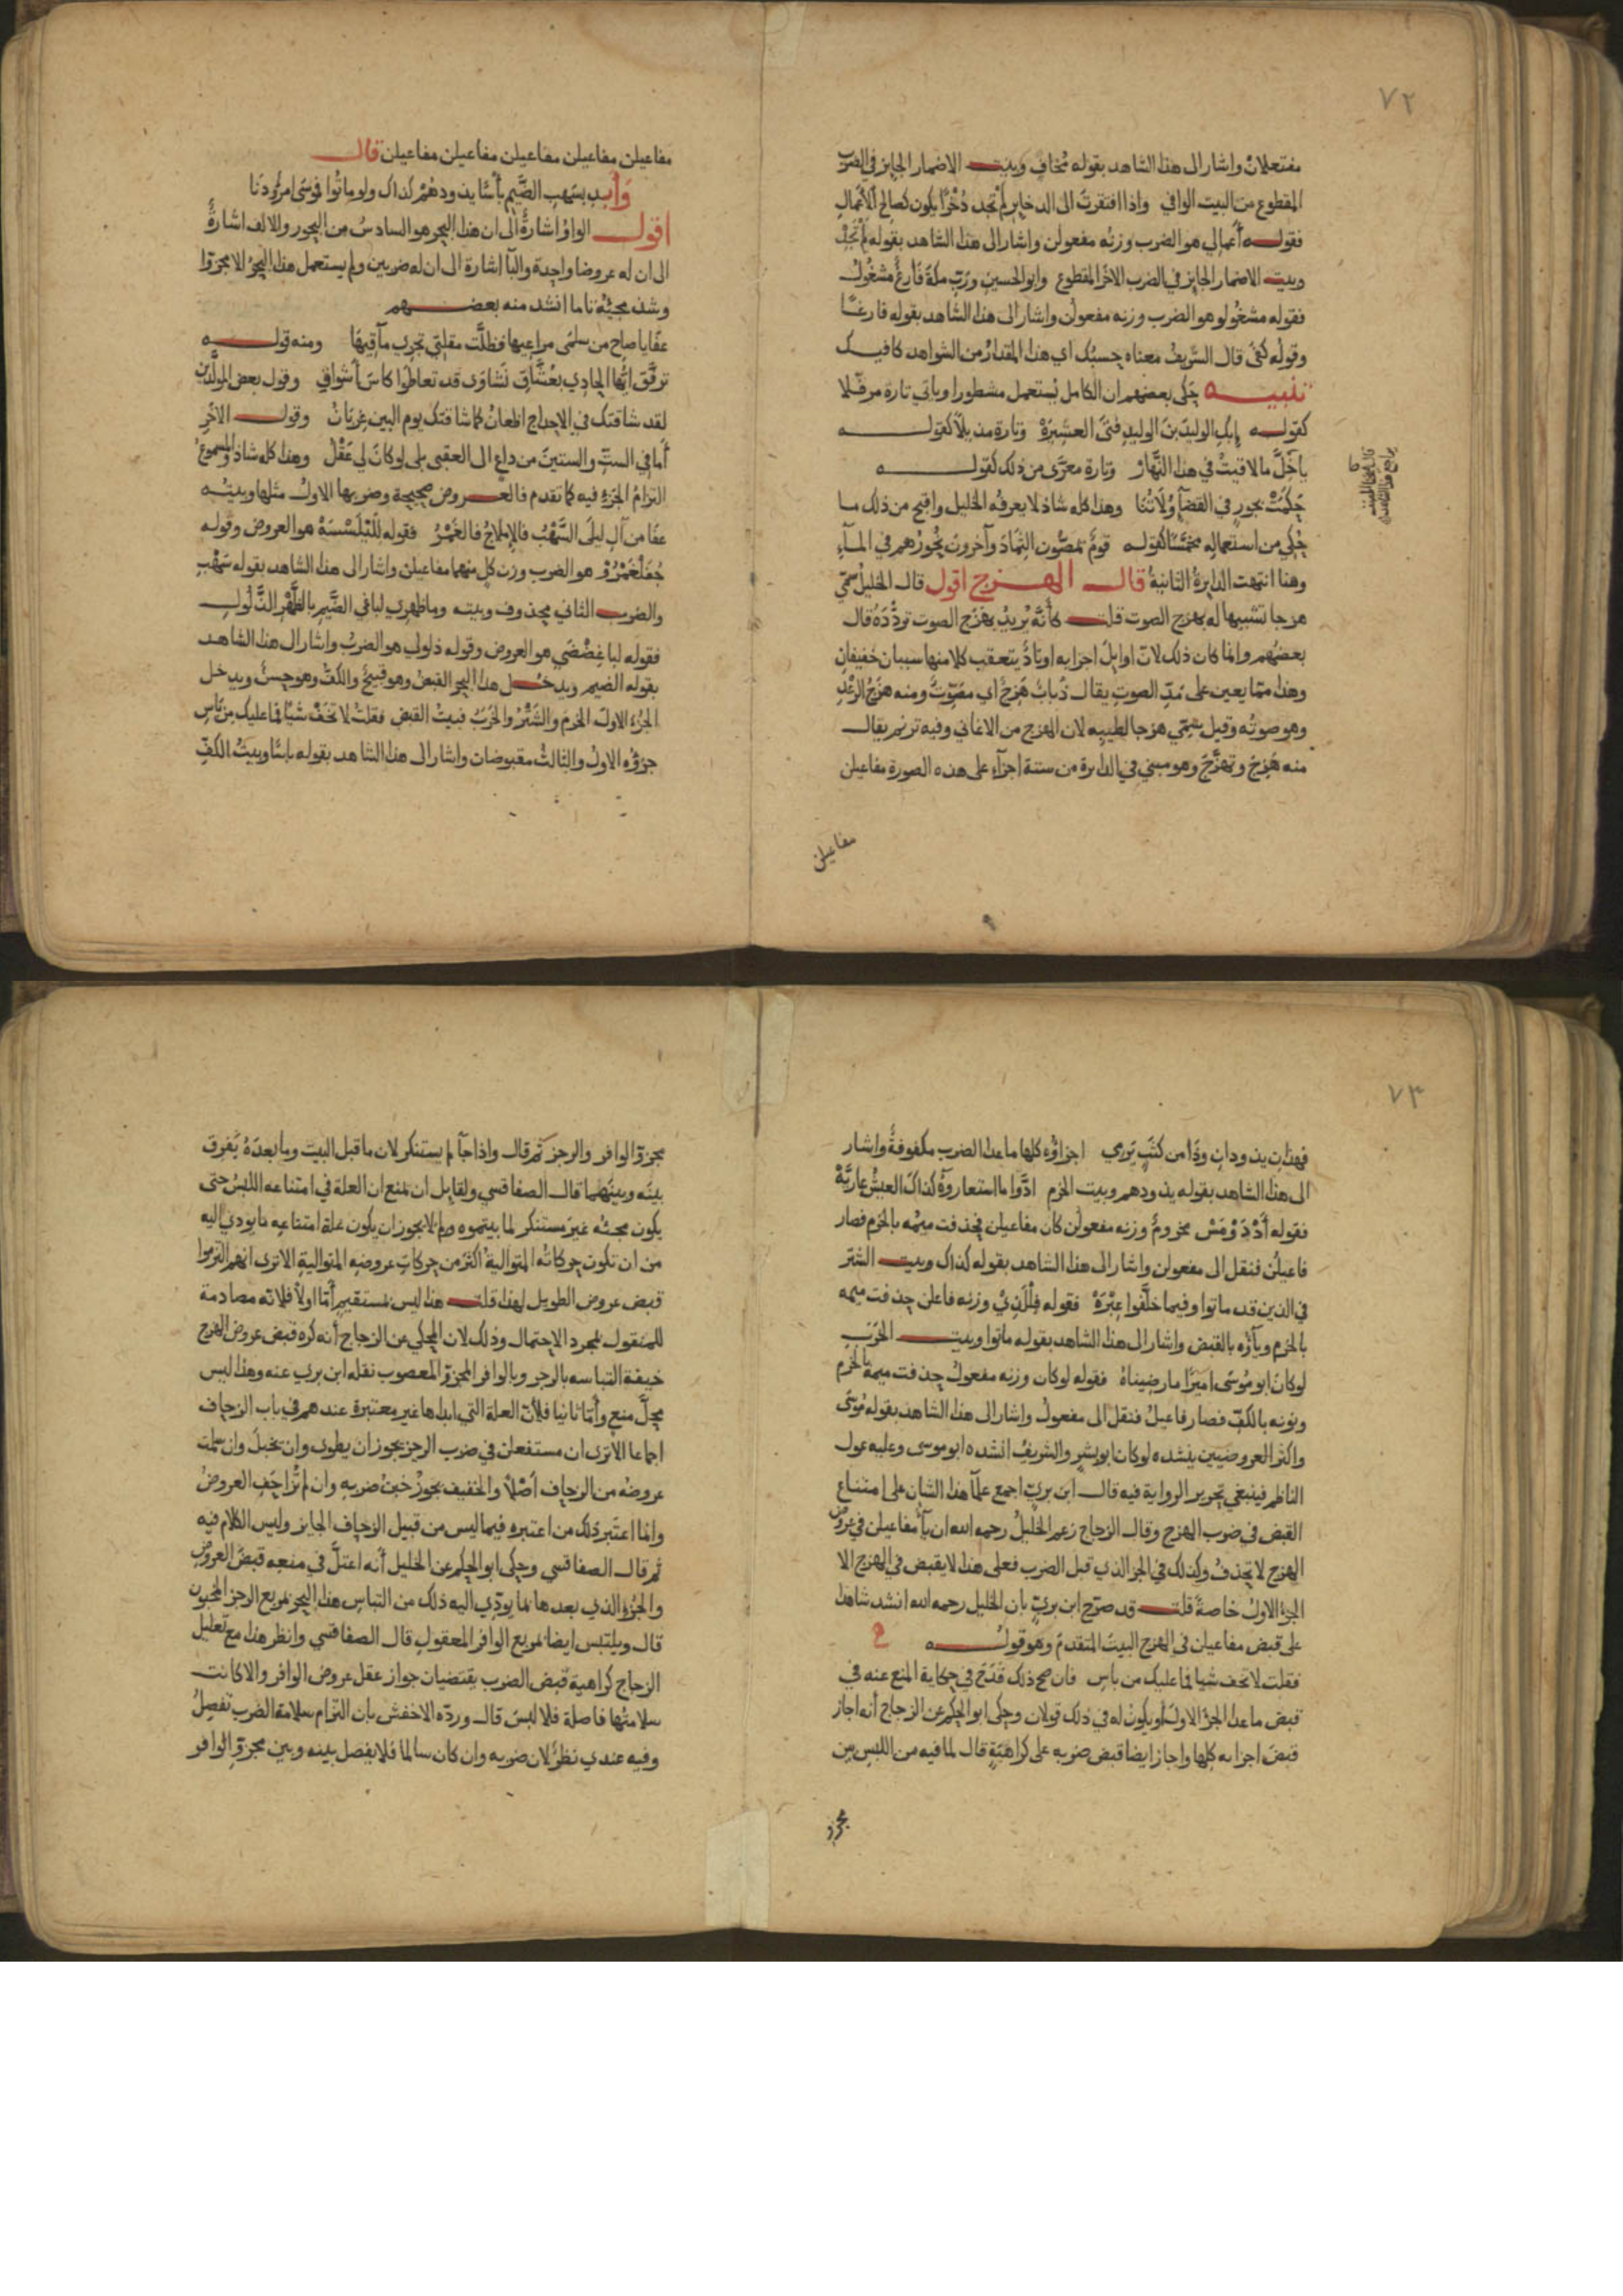 ٧٢
مفتعلان واشار الى هذا الشاهد بقوله تخاف وبيت الاضمار الجايز في الضرب
المقطوع من البيت الوافي واذا افتقرت الى الدخاير لم تجد ذُخْرًا يكون كصالح الأعمال
فقوله أعمالي هو الضرب وزنه مفعولن واشار الى هذا الشاهد بقوله لم تجد
وبيت الاضمار الجايز في الضرب الاخر المقطوع وابو الحسين وربِّ مكة فارغٌ مشغُولُ
فقوله مشغُولو هو الضرب وزنه مفعولن واشار الى هذا الشاهد بقوله فارغًا
وقوله كفَى قال الشريف معناه حسبك اي هذا المقدار من الشواهد كافيك
تنبيه حكى بعضهم ان الكامل يُستعمل مشطورا وياتي تارة مرفّلا
كقوله إبكِ الوليدَ بنَ الوليدِ فتَى العشيرَهْ وتارة مذيلاً كقوله
يا خلَّ ما لاقيتْ في هذا النَّهارْ وتارة معرّى من ذلك كقوله
حَكَمَتْ بجورٍ في القضآءِ وُلاتُنا وهذا كله شاذ لا يعرفُه الخليل واقبح من ذلك ما
حُكي من استعماله مخمّسًا كقوله قومٌ تمصُّون الثِمَادَ وآخرونَ نُحُورُهم في المآءِ
وهنا انتهت الدايرةُ الثانيةُ قال الهزج اقول قال الخليلُ سمّي
هزجا تشبيها له بهزج الصوت قلت كأنَّه يُريدُ بهَزَج الصوت تردُّدَهُ قال
بعضُهم وانما كان ذلك لانّ اوايلَ اجزايه اوتادٌ يتعقب كلا منها سببان خفيفانِ
وهذا مما يعين على مَدِّ الصوتِ يقال ذُبابٌ هَزِجٌ اي مُصَوِّتٌ ومنه هزَجُ الرَّعْدِ
وهو صوتُه وقيل سُمّي هزجا لطيبِه لان الهزج من الاغاني وفيه ترنم يقال
منه هَزِجَ وتهزَّجَ وهو مبني في الدايرة من ستة اجزآء على هذه الصورة مفاعيلن
مفاعيلن
مفاعيلن مفاعيلن مفاعيلن مفاعيلن مفاعيلن قال
وأبدِ بسَهبِ الضَّيمِ بأسًا يذودهُمْ كذاك ولو ماتُوا فموسَى امرؤٌ دَنَا
اقول الواوُ اشارةٌ الى ان هذا البحر هو السادسُ من البحور والالف اشارةٌ
الى ان له عروضا واحدة والبآ اشارة الى ان له ضربين ولم يستعمل هذا البحرُ الا مجزوّا
وشذ مجيئُه تاما انشد منه بعضهم
عفَا يا صاحِ من سلمَى مراعيها فظلَّت مقلتي تجري مآقِيهَا ومنه قوله
ترفَّق ايُّها الحادِي بعُشّاقٍ نَشاوَى قد تعاطَوا كاسَ أشواقِ وقول بعض المولَّدين
لقد شاقتكَ في الاحداجِ اظعانٌ كما شاقتكَ يوم البين غِربَانْ وقول الاخر
أما في الستِّ والستينَ من داعٍ الى العقبى بلى لو كانَ لي عَقْلُ وهذا كله شاذ والمسموعُ
التزامُ الجَزءِ فيه كما تقدم فالعروض صحيحة وضربها الاولُ مثلها وبيتُه
عفَا من آلِ ليلَى السَّهْبُ فالإملاحُ فالغَمْرُ فقوله لَلَيْلَسْسَهْ هو العروض وقوله
حُفَلْغَمْرُوْ هو الضرب وزن كل منهما مفاعيلن واشار الى هذا الشاهد بقوله سَهْبِ
والضرب الثاني محذوف وبيته وما ظهري لباغي الضَّيمِ بالظَّهْرِ الذَّلُولِ
فقوله لباغِضْضَي هو العروض وقوله ذلولي هو الضربُ واشار الى هذا الشاهد
بقوله الضيم ويدخل هذا البحر القبض وهو قبيحٌ والكفُّ وهو حسنٌ ويدخل
الجزءَ الاولَ الخرمُ والشَّتْرُ والخَرَبُ فبيتُ القبض فقلتُ لا تخَفْ شيًا فما عليك من بَاسِ
جزؤه الاولُ والثالثُ مقبوضان واشار الى هذا الشاهد بقوله باسًا وبيتُ الكفِّ
٧٣
فهذانِ يذودانِ وذا من كثَبٍ يَرمي اجزاؤه كلها ما عدا الضرب مكفوفةٌ واشار
الى هذا الشاهد بقوله يذودهم وبيت الخرم ادَّوا ما استعاروهُ كذاكَ العيشُ عاريَّهْ
فقوله أَدْدَوْمَسْ مخرومٌ وزنه مفعولن كان مفاعيلن فحذفت ميمُه بالخرم فصار
فاعيلن فنقل الى مفعولن واشار الى هذا الشاهد بقوله كذاك وبيت الشتر
في الذين قد ماتوا وفيما خلَّفوا عِبْرَهْ فقوله فِلْلَذِيْ وزنه فاعلن حذفت ميمه
بالخرم وياؤه بالقبض واشار الى هذا الشاهد بقوله ماتوا وبيت الخَرَب
لو كانَ ابو مُوسَى اميرًا ما رضيناهُ فقوله لو كان وزنه مفعولُ حذفت ميمه بالخرم
ونونه بالكفِّ فصار فاعيلُ فنقل الى مفعولُ واشار الى هذا الشاهد بقوله مُوسَى
واكثر العروضيين ينشده لو كان ابو بشرٍ والشريفُ انشده ابو موسى وعليه عول
الناظم فينبغي تحرير الرواية فيه قال ابن بري اجمع علمآ هذا الشان على امتناع
القبض في ضرب الهزج وقال الزجاج زعم الخليلُ رحمه الله ان يآ مفاعيلن في عروض
الهزج لا تحذفُ وكذلك في الجز الذي قبل الضرب فعلى هذا لا يقبض في الهزج الا
الجزء الاولُ خاصةً قلت قد صرّح ابن بريّ بان الخليل رحمه الله انشد شاهدا
على قبض مفاعيلن في الهزج البيتَ المتقدمَ وهو قوله
فقلت لا تخف شيا فما عليك من باسِ فان صح ذلك قَدَحَ في حكاية المنع عنه في
قبض ما عدا الجزء الاولَ او يكونُ له في ذلك قولان وحكى ابو الحكم عن الزجاج أنه اجاز
قبضَ اجزايه كلها واجاز ايضا قبض ضربه على كراهيَةٍ قال لما فيه من اللبس بين
مجزو
مجزوّ الوافر والرجز ثم قال واذا جآ لم يستنكر لان ما قبل البيت وما بعدَهُ يُفرق
بينَه وبينَهما قال الصفاقسي ولقايل ان يمنع ان العلة في امتناعه اللبسُ حتى
يكون مجيئُه غيرَ مستنكر لما بينوه ولم لا يجوز ان يكون علة امتناعِه ما يودي اليه
من ان تكون حركاتُه المتواليةُ اكثرَ من حركاتِ عروضِه المتواليةِ الا ترى انهم التزموا
قبض عروض الطويل لهذا قلت هذا ليس بمستقيمٍ أمّا اولاً فلانّه مصادمة
للمنقول بمجرد الاحتمال وذلك لان المحكي عن الزجاج أنه كره قبض عروض الهزج
خيفة التباسه بالرجز وبالوافر المجزوّ المعصوب نقله ابن بري عنه وهذا ليس
محلَّ منع وأمّا ثانيا فلأنّ العلة التي ابداها غير معتبرة عندهم في باب الزحاف
اجماعا الا ترى ان مستفعلن في ضرب الرجز يجوز ان يطوى وان يخبلَ وان سلمت
عروضُه من الزحاف أصْلاً والخفيف يجوزُ خبنُ ضربِه وان لم تُزاحَفِ العروضُ
وانما اعتَبر ذلك من اعتبره فيما ليس من قبيل الزحاف الجايز وليس الكلام فيه
ثم قال الصفاقسي وحكى ابو الحكم عن الخليل أنه اعتلَّ في منعِه قبضَ العروضِ
والجزءِ الذي بعدها بما يودّي اليه ذلك من التباسِ هذا البحر بمربع الرجز المخبون
قال ويلتبس ايضا بمربع الوافر المعقولِ قال الصفاقسي وانظر هذا مع تعليل
الزجاج كراهية قبض الضرب يقتضيان جواز عقل عروض الوافر والا كانت
سلامتُها فاصلة فلا لبسَ قال وردّه الاخفش بان التزام سلامة الضرب تفصِلُ
وفيه عندي نظرٌ لان ضربه وان كان سالمًا فلا يفصل بينه وبين مجزوّ الوافر